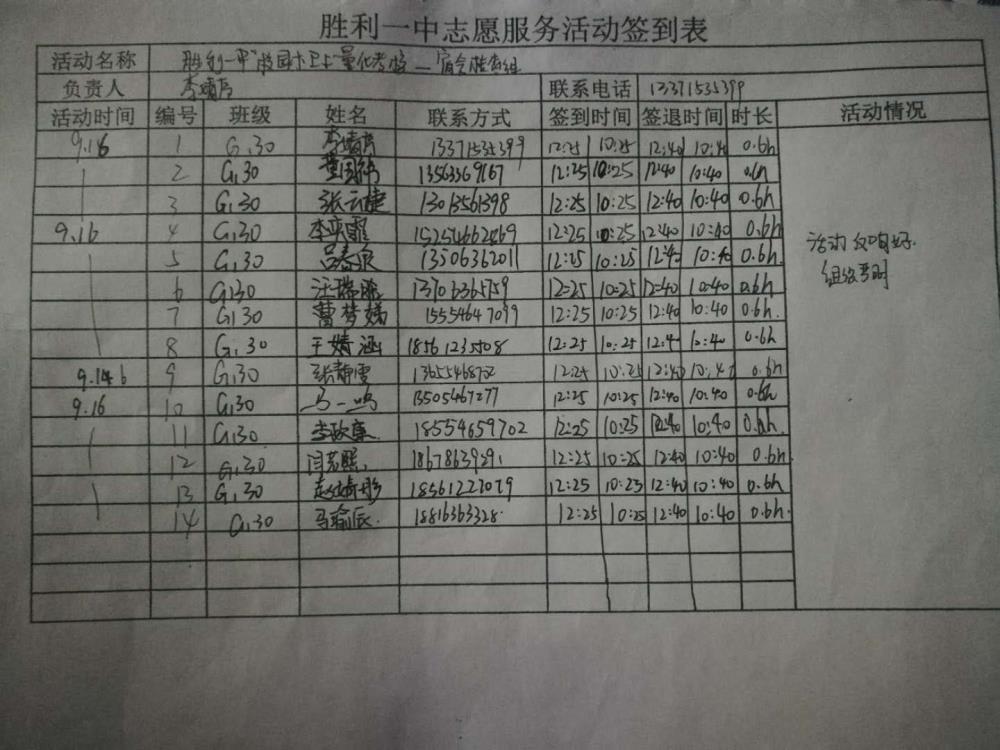 胜利一中志愿服务活动签到表
活动名称 胜利一中校园卫士量化考核—宿舍检查组
负责人 联系电话 13371535399
活动时间 编号 班级 姓名 联系方式 签到时间 签退时间 时长 活动情况
9.16 1 G130 13371535399 12:25 10:25 12:40 10:40 0.6h
2 G130 13563369167 12:25 10:25 12:40 10:40 0.6h
3 G130 张云捷 13013561398 12:25 10:25 12:40 10:40 0.6h
9.16 4 G130 李奕霏 15254662469 12:25 10:25 12:40 10:40 0.6h
5 G130 吕春泉 13506362011 12:25 10:25 12:4 10:40 0.6h
6 G130 汪瑞 12:25 10:25 12:40 10:40 0.6h
7 G130 曹梦娣 15554647099 12:25 10:25 12:40 10:40 0.6h.
8 G130 于婧涵 18561235508 12:25 10:25 12:4 10:40 0.6h
9.16 9 G130 张静雯 12:25 10:25 12:40 10:40 0.6h
9.16 10 G130 马一鸣 13505467277 12:25 10:25 12:40 10:40 0.6h
11 G130 李政豪 18554659702 12:25 10:25 12:40 10:40 0.6h
12 G130 闫若熙 18678639291 12:25 10:25 12:40 10:40 0.6h
13 G130 赵婧彤 18561222079 12:25 10:25 12:40 10:40 0.6h
14 G130 马瑜辰 18816363328 12:25 10:25 12:40 10:40 0.6h.
活动反响好.
组织